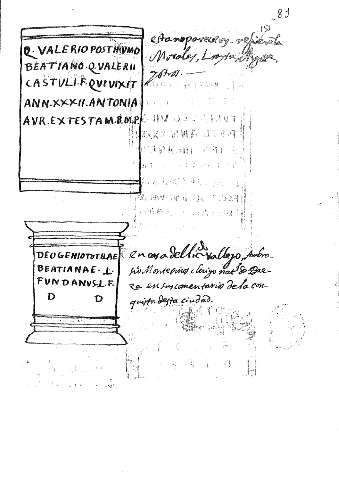 81
151
Q. VALERIO POSTHVMO
BEATIANO. Q. VALERII
CASTVLI. F. QVI VIXIT
ANN. XXXII. ANTONIA
AVR. EX TESTAM. P. M. P.
esta no parece oy. refierenla
Morales,
DEO GENIO TVTELAE
BEATIANAE. L.
FVNDANVS. L. F.
D D
en casa del licdo Vallejo, Ambro-
sio Montesino clerigo natl de Bae-
za en su comentario de la con-
quista desta ciudad.